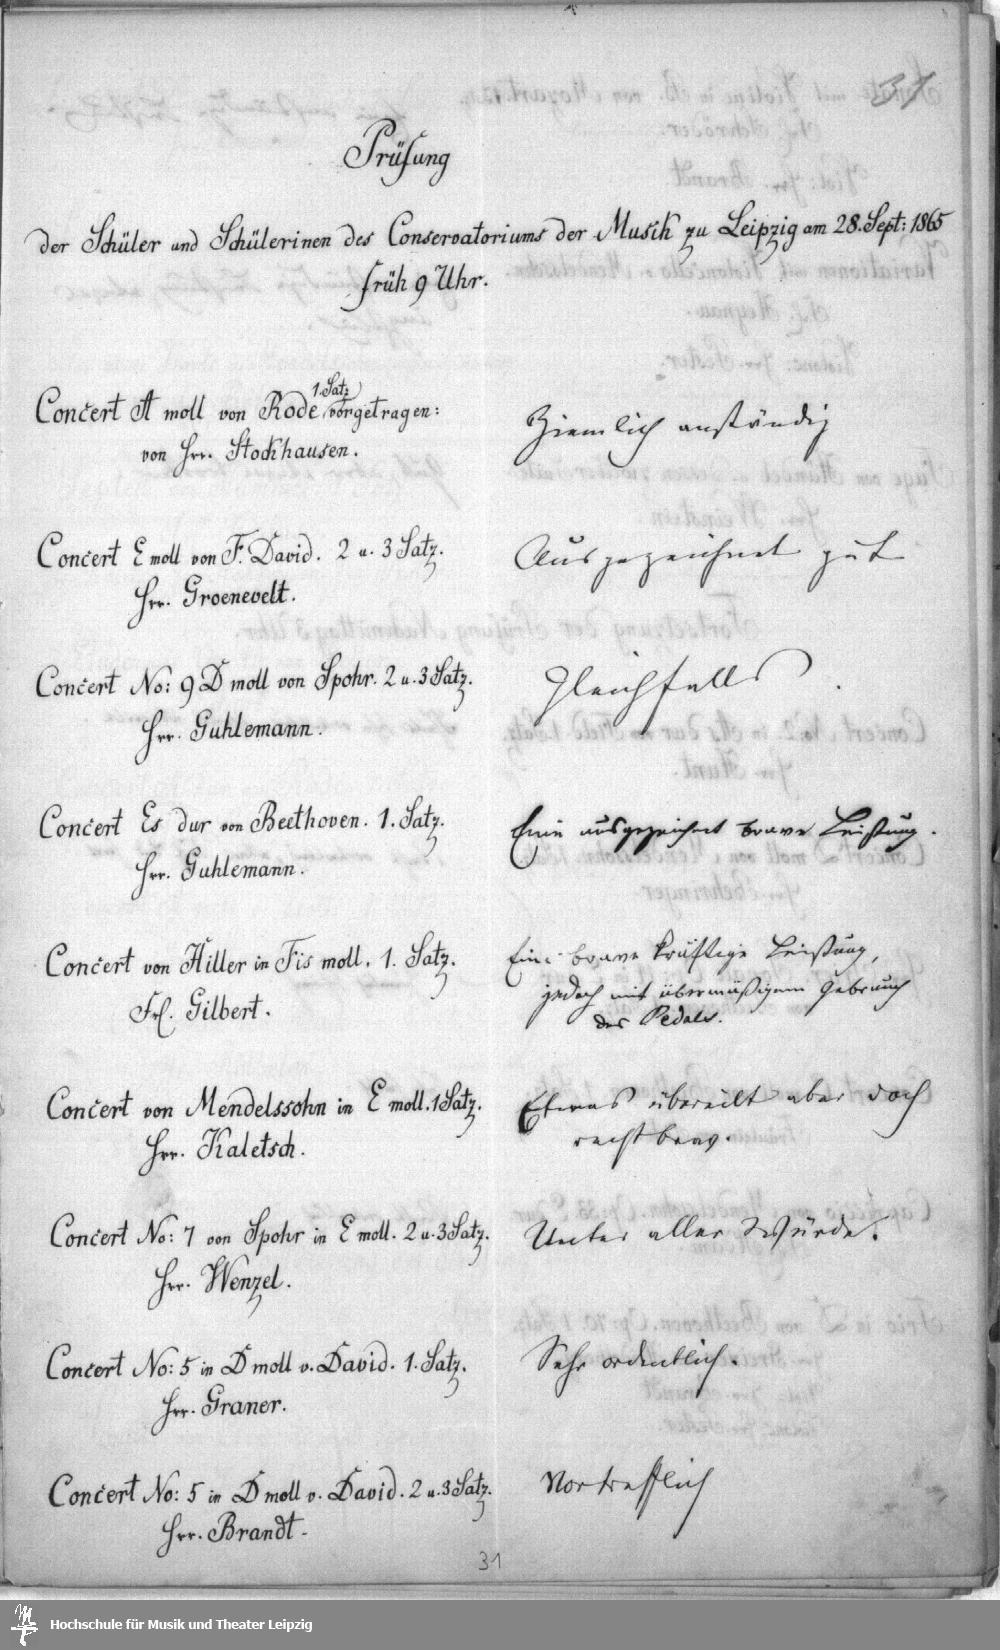 31
Prüfung
der Schüler und Schülerinen des Conservatoriums der Musik zu Leipzig am 28. Sept: 1865
früh 9 Uhr.
1. Satz
Concert A moll von Rode vorgetragen:
von Hrr. Stockhausen.
Ziemlich anständig
Concert E moll von F. David. 2 u. 3 Satz.
Hrr. Groenevelt.
Ausgezeichnet gut
Concert No: 9 D moll von Spohr. 2 u. 3 Satz.
Hrr. Guhlemann.
Gleichfalls.
Concert Es dur von Beethoven. 1. Satz.
Hrr. Guhlemann.
Eine ausgezeichnet brave Leistung.
Concert von Hiller in Fis moll. 1. Satz.
Frl. Gilbert.
Eine brave kräftige Leistung,
jedoch mit übermäßigem Gebrauch
des Pedals.
Concert von Mendelssohn in E moll. 1 Satz.
Hrr. Kaletsch.
Etwas übereilt aber doch
recht brav.
Concert No: 7 von Spohr in E moll. 2 u. 3 Satz.
Hrr. Wenzel.
Unter aller Würde.
Concert No: 5 in D moll v. David. 1. Satz.
Hrr. Graner.
Sehr ordentlich.
Concert No: 5 in D moll v. David. 2 u. 3 Satz.
Hrr. Brandt.
Vortrefflich
31
Hochschule für Musik und Theater Leipzig